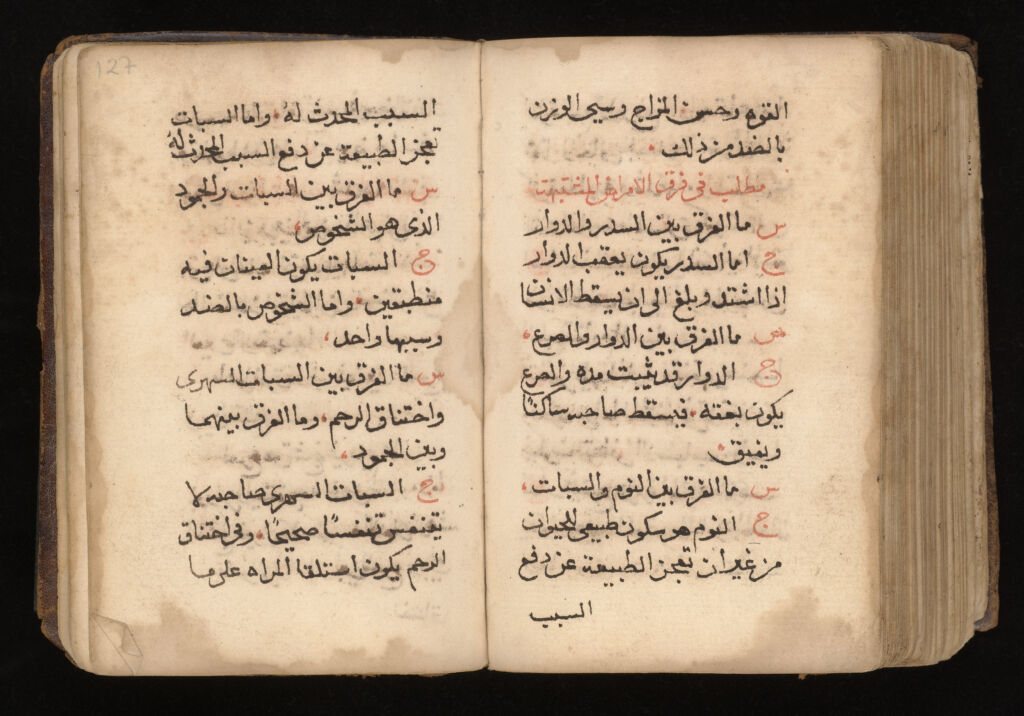 القوم وحسن المزاج وسيى الوزن
بالضد من ذلك
مطلب في فرق الامراض المشتبهة
س ما الفرق بين السدر والدوار
ج اما السدر يكون يعقب الدوار
اذا اشتد وبلغ الى ان يسقط الانسان
س ما الفرق بين الدوار والصرع
ج الدوار قد يثبت مده والصرع
يكون بغته فيسقط صاحبه ساكنًا
ويفيق
س ما الفرق بين النوم والسبات
ج النوم هو سكون طبيعى للحيوان
من غير ان تعجز الطبيعة عن دفع
السبب
127
السبب المحدث لهُ واما السبات
تعجز الطبيعة عن دفع السبب المحدث لهُ
س ما الفرق بين السبات والجمود
الذى هو الشخوص
ج السبات يكون العينان فيه
منطبقين واما الشخوص بالضد
وسببها واحد
س ما الفرق بين السبات السهرى
واختناق الرحم وما الفرق بينهما
وبين الجمود
ج السبات السهرى صاحبه لا
يتنفس تنفسًا صحيحًا وفى اختناق
الرحم يكون استلقا المراه على ما